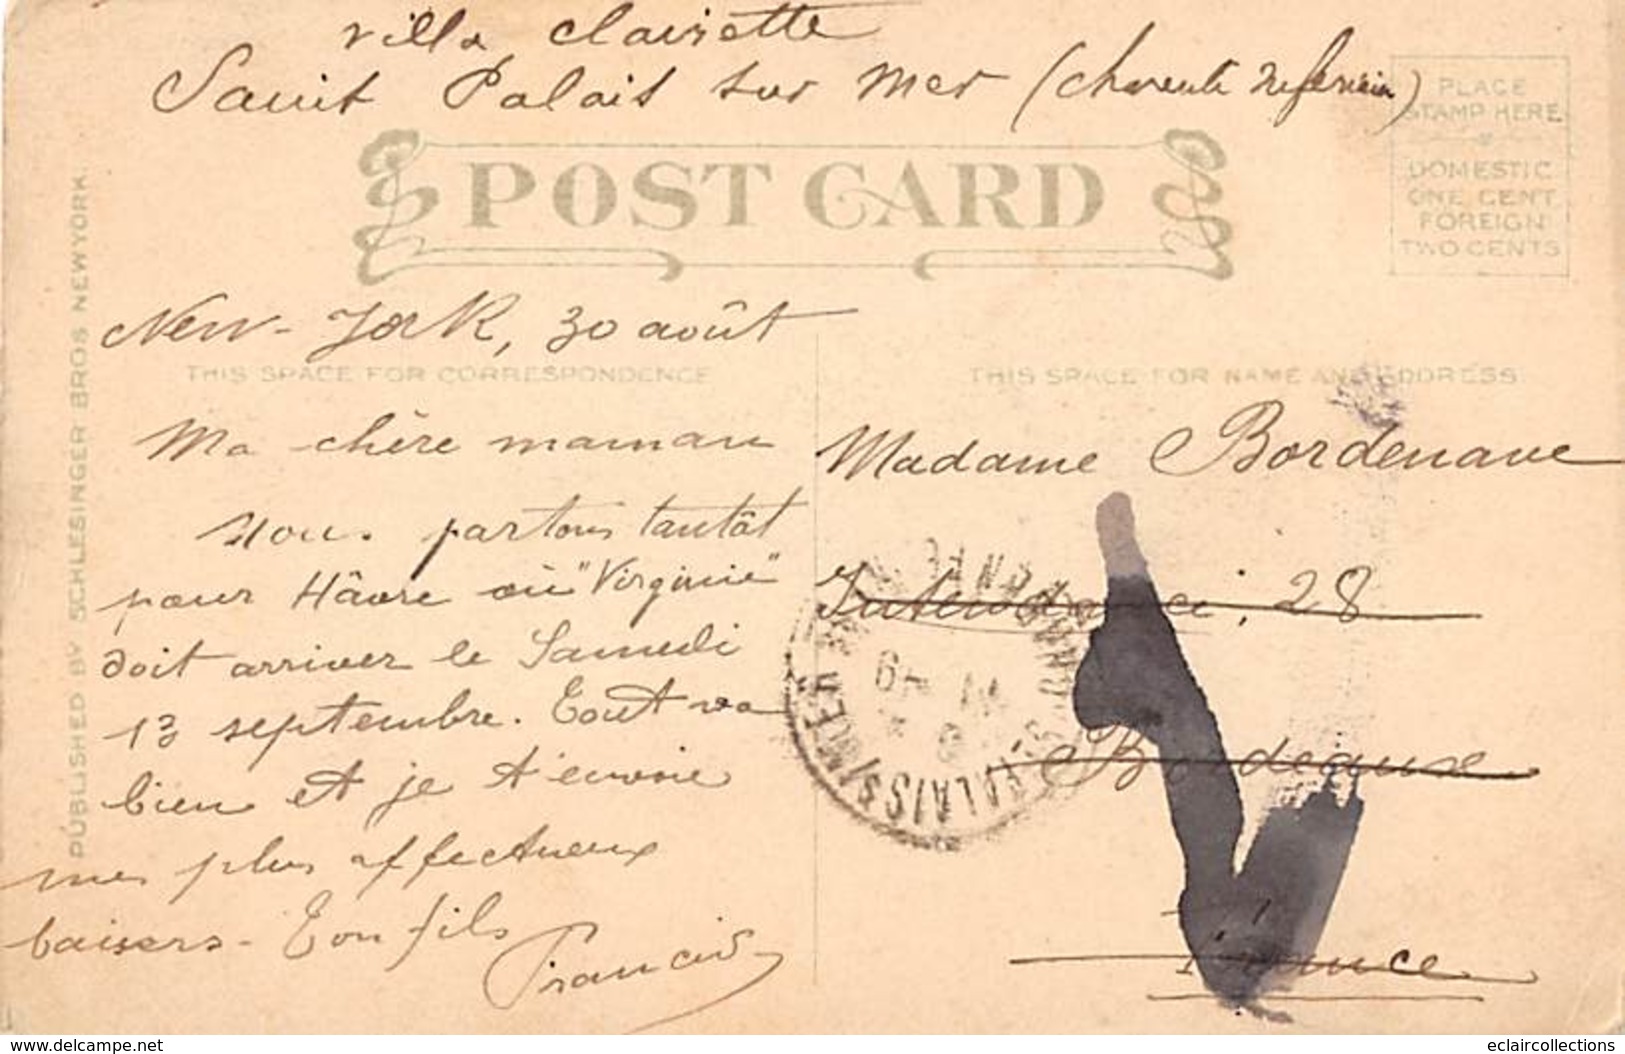 villa clairette
Saint Palais sur Mer (charente Inférieure)
PLACE
STAMP HERE
DOMESTIC
ONE CENT
FOREIGN
TWO CENTS
POST CARD
PUBLISHED BY SCHLESINGER BROS NEW YORK.
New-York, 30 août
THIS SPACE FOR CORRESPONDENCE
Ma chère maman
nous partons tantôt
pour Hâvre où "Virginie"
doit arriver le Samedi
13 septembre. Tout va
bien et je t'envoie
mes plus affectueux
baisers - Ton fils
Francis
THIS SPACE FOR NAME AND ADDRESS
Madame Bordenave
Intendance, 28
Bordeaux
France
www.delcampe.net
eclaircollections